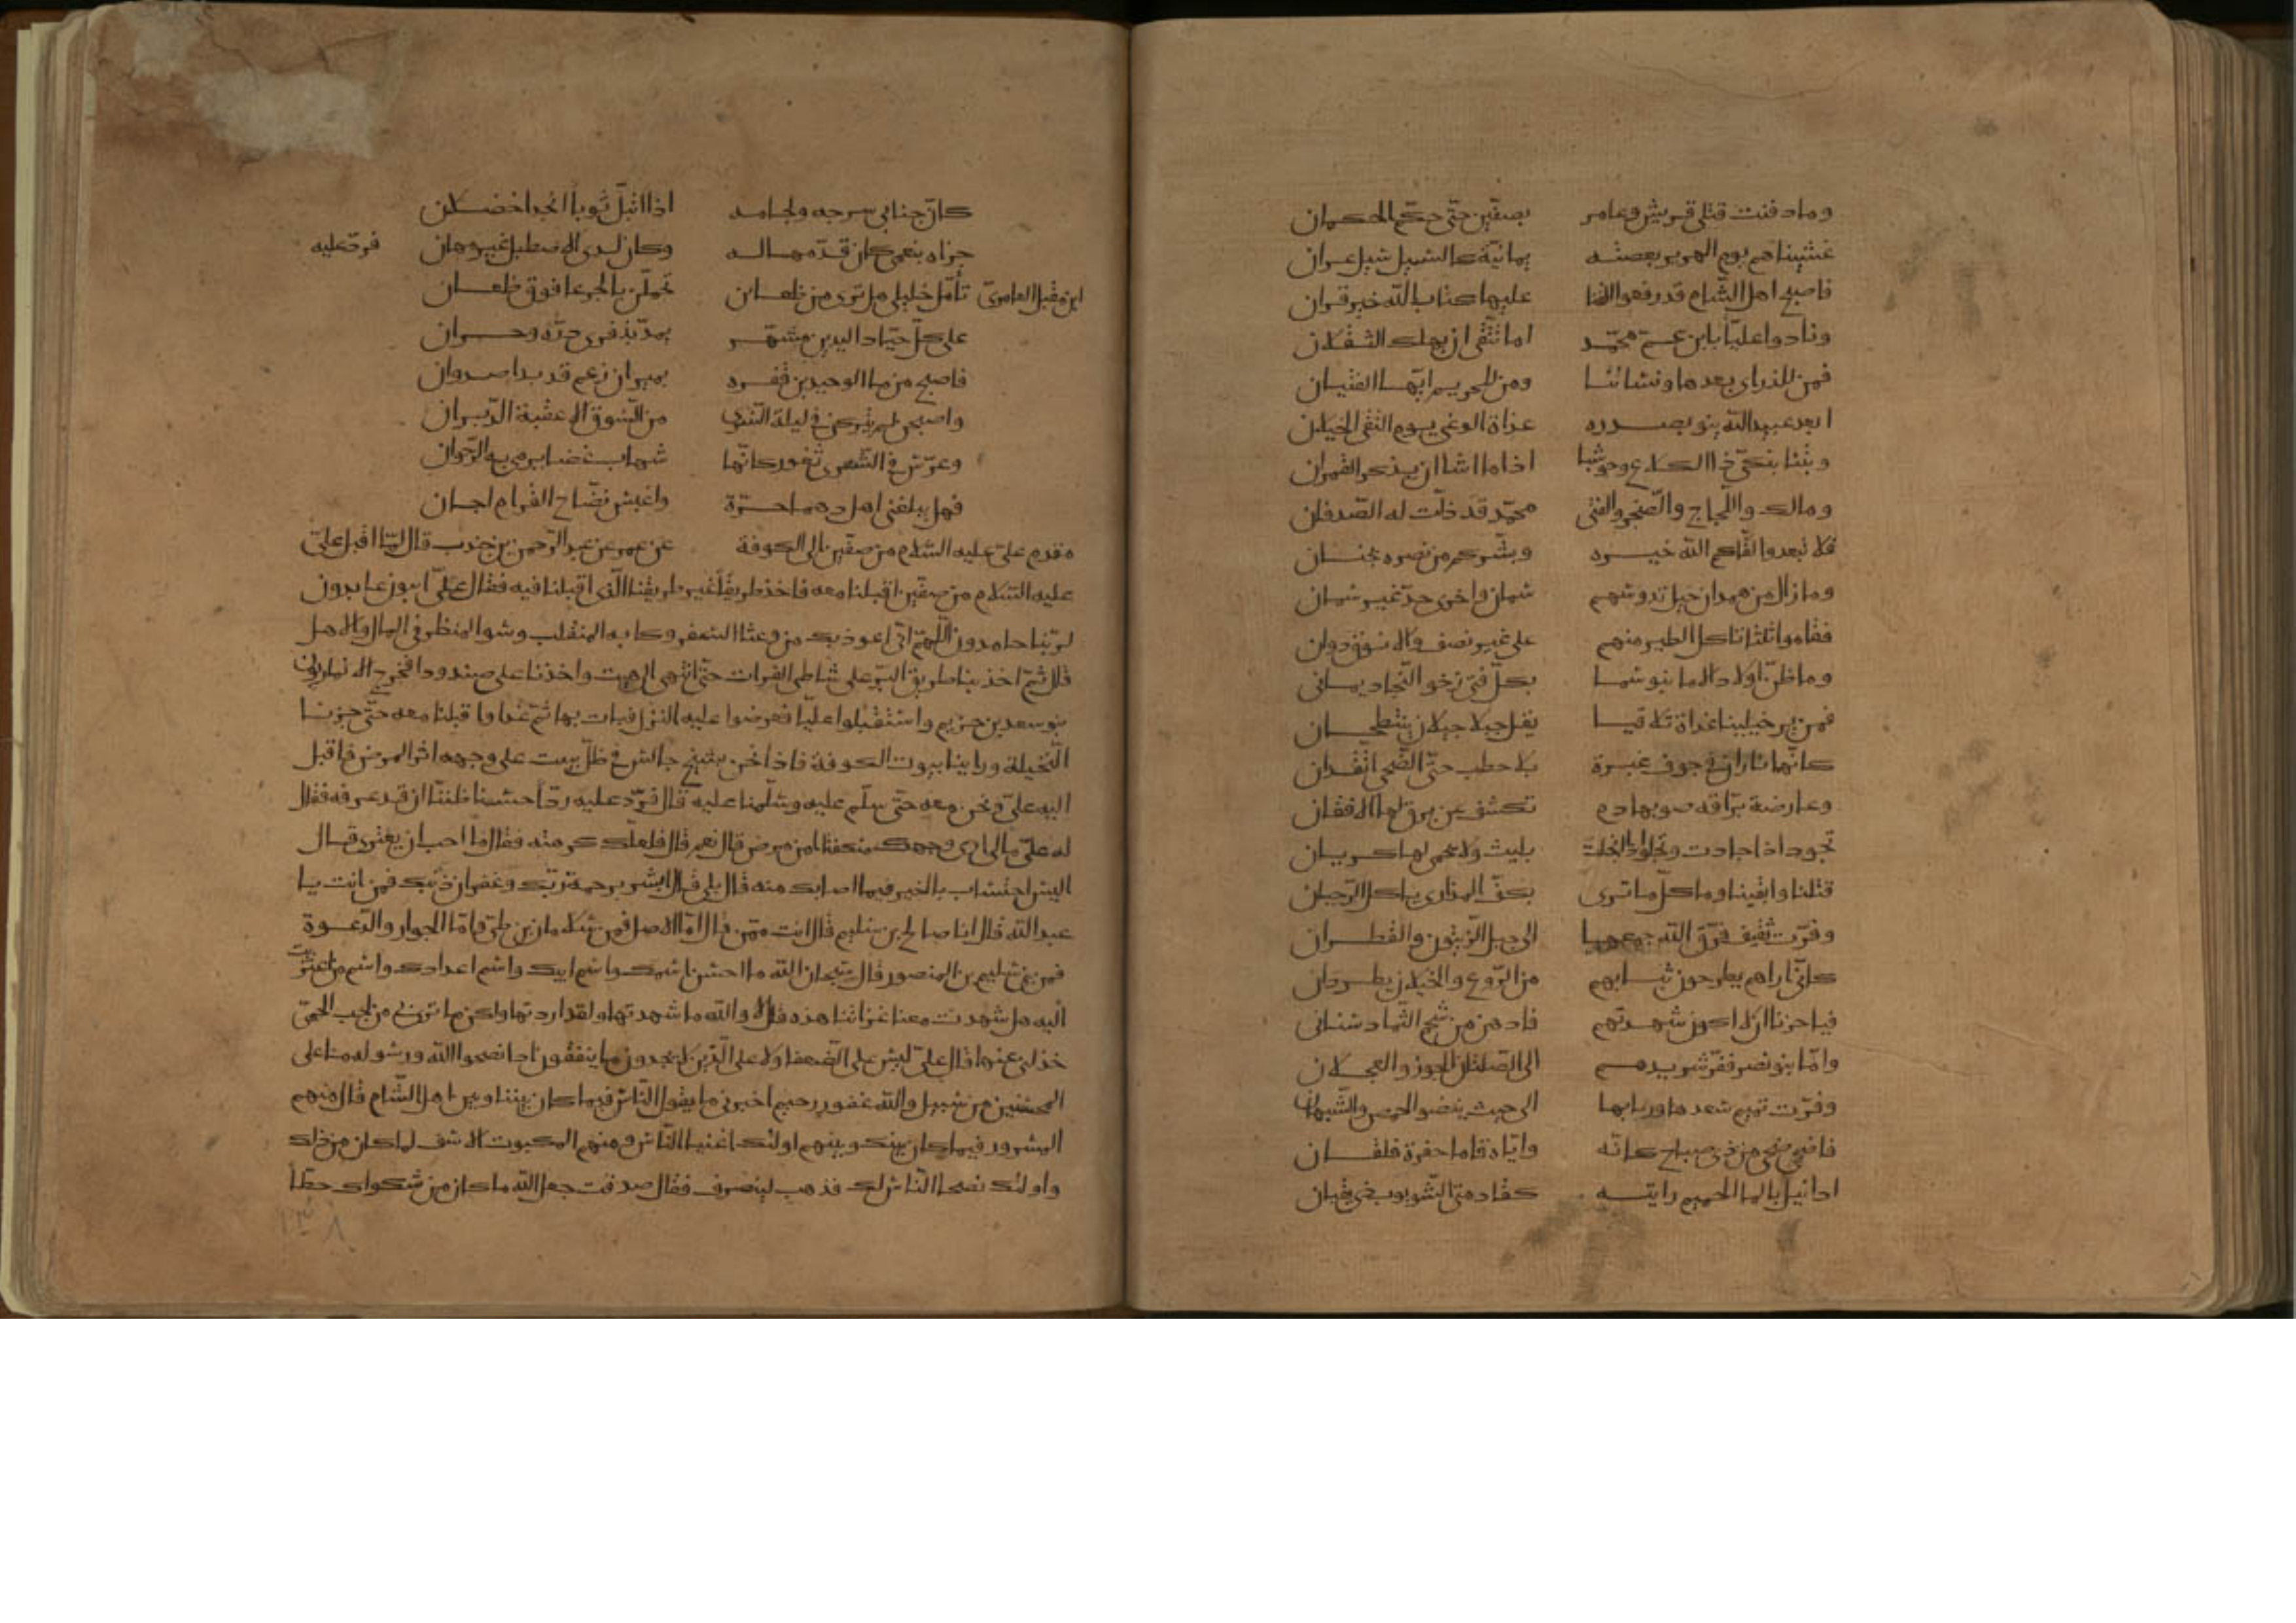 وما دفنت قتلى قريش وعامر بصفين حتى حكم الحكمان
غشيناهم يوم الهرير بعصبة يمانية كالسيل سيل عران
فاصبح اهل الشام قد رفعوا القنا عليها كتاب الله خير قران
ونادوا عليا يا بن عم محمد اما تتقى ان يهلك الثقلان
فمن للذرارى بعدها ونسائنا ومن للحريم ايها الفتيان
ابعد عبيد الله ينو بصدره غداة الوغى يوم التقى الخيلان
وبتنا نبكى ذا الكلاع وحوشبا اذا ما اشا ان يذكر القمران
ومالك واللجاج والصخر والفتى محمد قد ذلت له الصدفان
فلا تبعدوا لقاكم الله خيره وبشركم من نصره بجنان
وما زال من همدان خيل تدوسهم سمان واخرى جد غير سمان
فقاموا ثلثا تاكل الطير منهم على غير نصف والانوف دوان
وما ظن اولاد الاما بنو شما بكل فتى رخو النجاد يمانى
فمن ير خيلينا غداة تلاقيا يقل جبلا جيلان ينتطحان
كانهما ناران فى جوف غبرة بلا حطب حتى الضحى اتقدان
وعارضة براقه صوبها دم تكشف عن برق لها الافقان
تجود اذا جادت وتجلو اذا انجلت بليث ولا يحمى لها كربان
قتلنا وابقينا وما كل ما ترى بكف المذارى ياكل الرحيان
وفرت ثقيف فرق الله جمعها الى جبل الزيتون والقطران
كانى اراهم يطرحون ثيابهم من الروع والخيلان يطردان
فيا حزنا ان لا اكون شهدتهم فادهن من شحم الثماد سنانى
واما بنو نصر ففر شريدهم الى الصلتان الجوز والعجلان
وفرت تميم سعدها وربابها الى حيث ينضو الحمض والشبهان
فاضحى ضحى من ذى صباح كانه واياه قاما حفرة فلقان
اذا نيل بالما الحميم رايته كقادمتى الشوبوب يغى يقيان
كان جنابى سرجه ولجامه اذا ابتل ثوبا اتحر اخضلان
جزاه بنعمى كان قدمها له وكان لدى الاصطبل غير مهان فرد عليه
ابن مقبل العامرى تامل خليلى هل ترى من ظعائن تحملن بالجرعا فوق ظعان
على كل حياد اليدين مشهر يمد بذفرى حرة وحران
فاصبحن من ما الوحيدين فقره بميزان رعم قد بدا ضدوان
واصبحن لم يتركن فى ليلة السرى من السوق الا عقبة الدبران
وعرس فى الشعرى تغور كانها شهاب غضا يرمى به الرجوان
فهل يبلغنى اهل دهما حرة واعيس نضاح القرا مرجان
مقدم على عليه السلام من صفين الى الكوفة عن عمر عن عبد الرحمن بن جندب قال لما اقبل على
عليه السلام من صفين اقبلنا معه فاخذ طريقا غير طريقنا الذى اقبلنا فيه فقال على ايبون عابدون
لربنا حامدون اللهم انى اعوذ بك من وعثا السفر وكابه المنقلب وسو المنظر فى المال والاهل
قال ثم اخذ بنا طريق البر على شاطى الفرات حتى انتهى الى هيت واخذنا على صندودا فخرج الانماريون
بنو سعد بن حزيم واستقبلوا عليا فعرضوا عليه النزل فبات بها ثم غدا واقبلنا معه حتى جزنا
النخيلة وراينا بيوت الكوفة فاذا نحن بشيخ جالس فى ظل بيت على وجهه اثر المرض فاقبل
اليه على ونحن معه حتى سلم عليه وسلمنا عليه قال فرد عليه ردا حسنا ظننا ان قد عرفه فقال
له على مالى ارى وجهك منكفتا امن مرض قال نعم قال فلعلك كرهته فقال ما احب ان يعترى قال
اليس احتساب بالخير فيما اصابك منه قال بلى قال ابشر برحمة ربك وغفران ذنبك فمن انت يا
عبد الله قال انا صالح بن سليم قال انت ممن قال اما الاصل فمن سلامان بن طى واما الجوار والدعوة
فمن بنى سليم بن المنصور قال سبحان الله ما احسن اسمك واسم ابيك واسم اعدادك واسم من اعتزيت
اليه هل شهدت معنا غزاتنا هذه قال لا والله ما شهدتها ولقد اردتها ولكن ما ترى فى من لجب الحمى
خذلنى عنها قال على ليس على الضعفا ولا على الذين لا يجدون ما ينفقون اذا نصحوا لله ورسوله ما على
المحسنين من سبيل والله غفور رحيم اخبرنى ما يقول الناس فيما كان بيننا وبين اهل الشام قال منهم
المسرور فيما كان بينك وبينهم اولئك اغنيا الناس ومنهم المكبوت الاسف لما كان من ذلك
واولئك نصحا الناس لك فذهب لينصرف فقال صدقت جعل الله ما كان من شكواك حطا
١٣٨